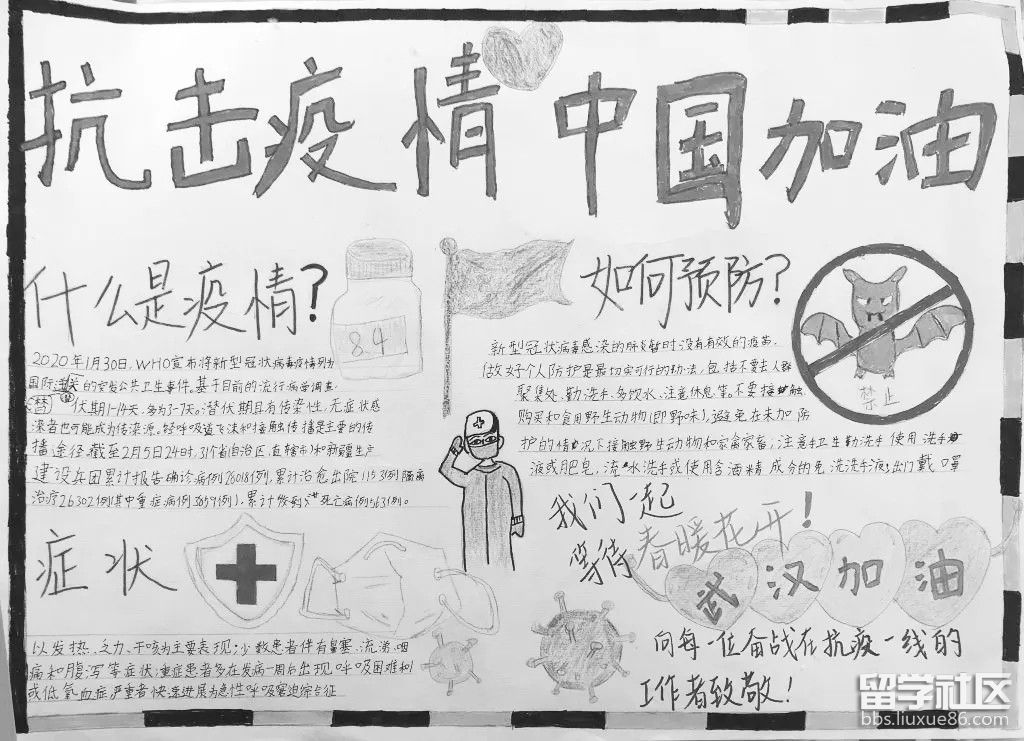 抗击疫情中国加油
什么是疫情?
8.4
2020年1月30日,WHO宣布将新型冠状病毒疫情列为
国际 的突发公共卫生事件。基于目前的流行病学调查,
潜伏期1-14天,多为3-7天。潜伏期且有传染性,无症状感
染者也可能成为传染源。经呼吸道飞沫和接触传播是主要的传
播途径.截至2月5日24时,31个省自治区,直辖市)和新疆生产
建设兵团累计报告确诊病例28018例,累计治愈出院1153例隔离
治疗26302例(其中重症病例3859例),累计 死亡病例563例。
症状
以发热、乏力、干咳为主要表现;少数患者伴有鼻塞、流涕、咽
痛和腹泻等症状;重症患者多在发病一周后出现呼吸困难和
或低氧血症严重者快速进展为急性呼吸窘迫综合征
如何预防?
新型冠状病毒感染的肺炎暂时没有有效的疫苗,
做好个人防护是最切实可行的办法,包括不要去人群
聚集处、勤洗手、多饮水、注意休息等,不要接触,
购买和食用野生动物(即野味),避免在未加防
护的情况下接触野生动物和家禽家畜;注意手卫生勤洗手使用洗手
液或肥皂,流水洗手或使用含酒精成分的免洗洗手液;出门戴口罩
禁止
我们一起
等待春暖花开!
武汉加油
向每一位奋战在抗疫一线的
工作者致敬!
留学社区
bbs.liuxue86.com